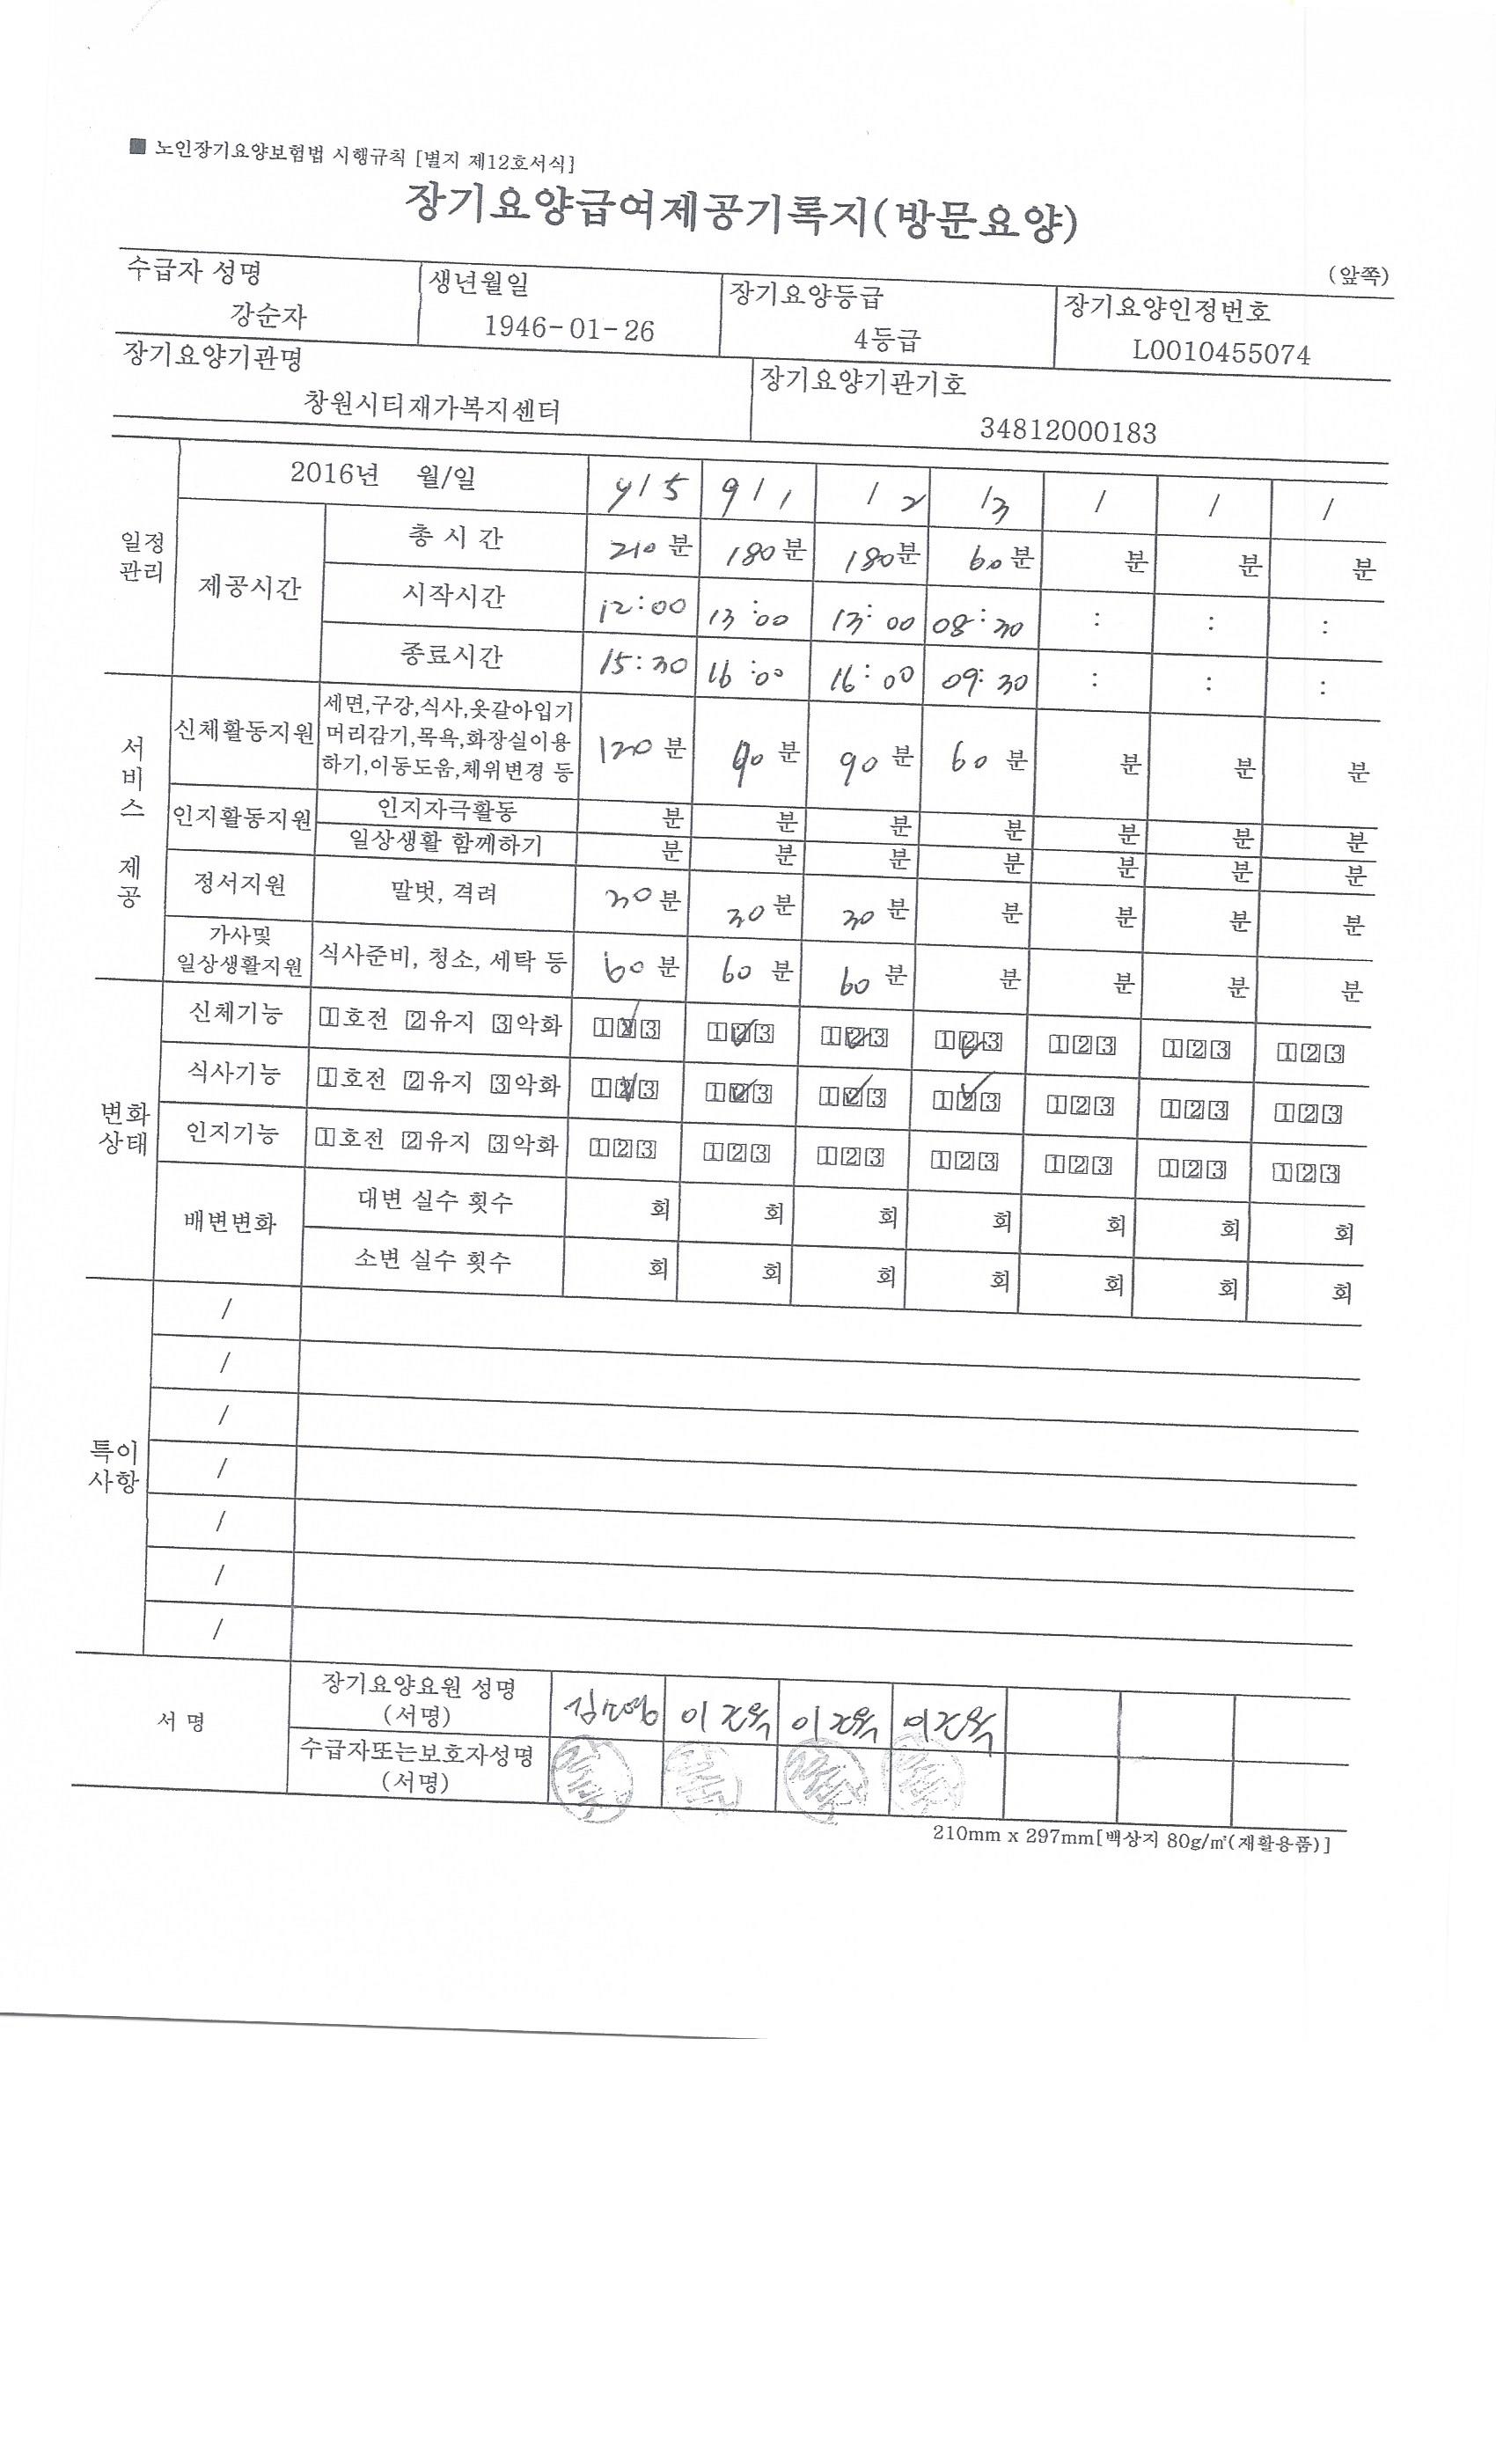 ■ 노인장기요양보험법 시행규칙 [별지 제12호서식]
장기요양급여제공기록지(방문요양)
(앞쪽)
수급자 성명 생년월일 장기요양등급 장기요양인정번호
강순자 1946-01-26 4등급 L0010455074
장기요양기관명 장기요양기관기호
창원시티재가복지센터 34812000183
일정관리
2016년 월/일 9/5 9/1 /2 /3 / / /
제공시간
총 시 간 210분 180분 180분 60분 분 분 분
시작시간 12:00 13:00 13:00 08:30 : : :
종료시간 15:30 16:00 16:00 09:30 : : :
서비스 제공
신체활동지원
세면,구강,식사,옷갈아입기
머리감기,목욕,화장실이용
하기,이동도움,체위변경 등
120분 90분 90분 60분 분 분 분
인지활동지원
인지자극활동 분 분 분 분 분 분 분
일상생활 함께하기 분 분 분 분 분 분 분
정서지원 말벗, 격려 30분 30분 30분 분 분 분 분
가사및
일상생활지원
식사준비, 청소, 세탁 등 60분 60분 60분 분 분 분 분
변화상태
신체기능 1호전 2유지 3악화 123 123 123 123 123 123 123
식사기능 1호전 2유지 3악화 123 123 123 123 123 123 123
인지기능 1호전 2유지 3악화 123 123 123 123 123 123 123
배변변화
대변 실수 횟수 회 회 회 회 회 회 회
소변 실수 횟수 회 회 회 회 회 회 회
특이사항
/
/
/
/
/
/
/
서 명
장기요양요원 성명
(서명)
수급자또는보호자성명
(서명)
210mm x 297mm[백상지 80g/㎡(재활용품)]